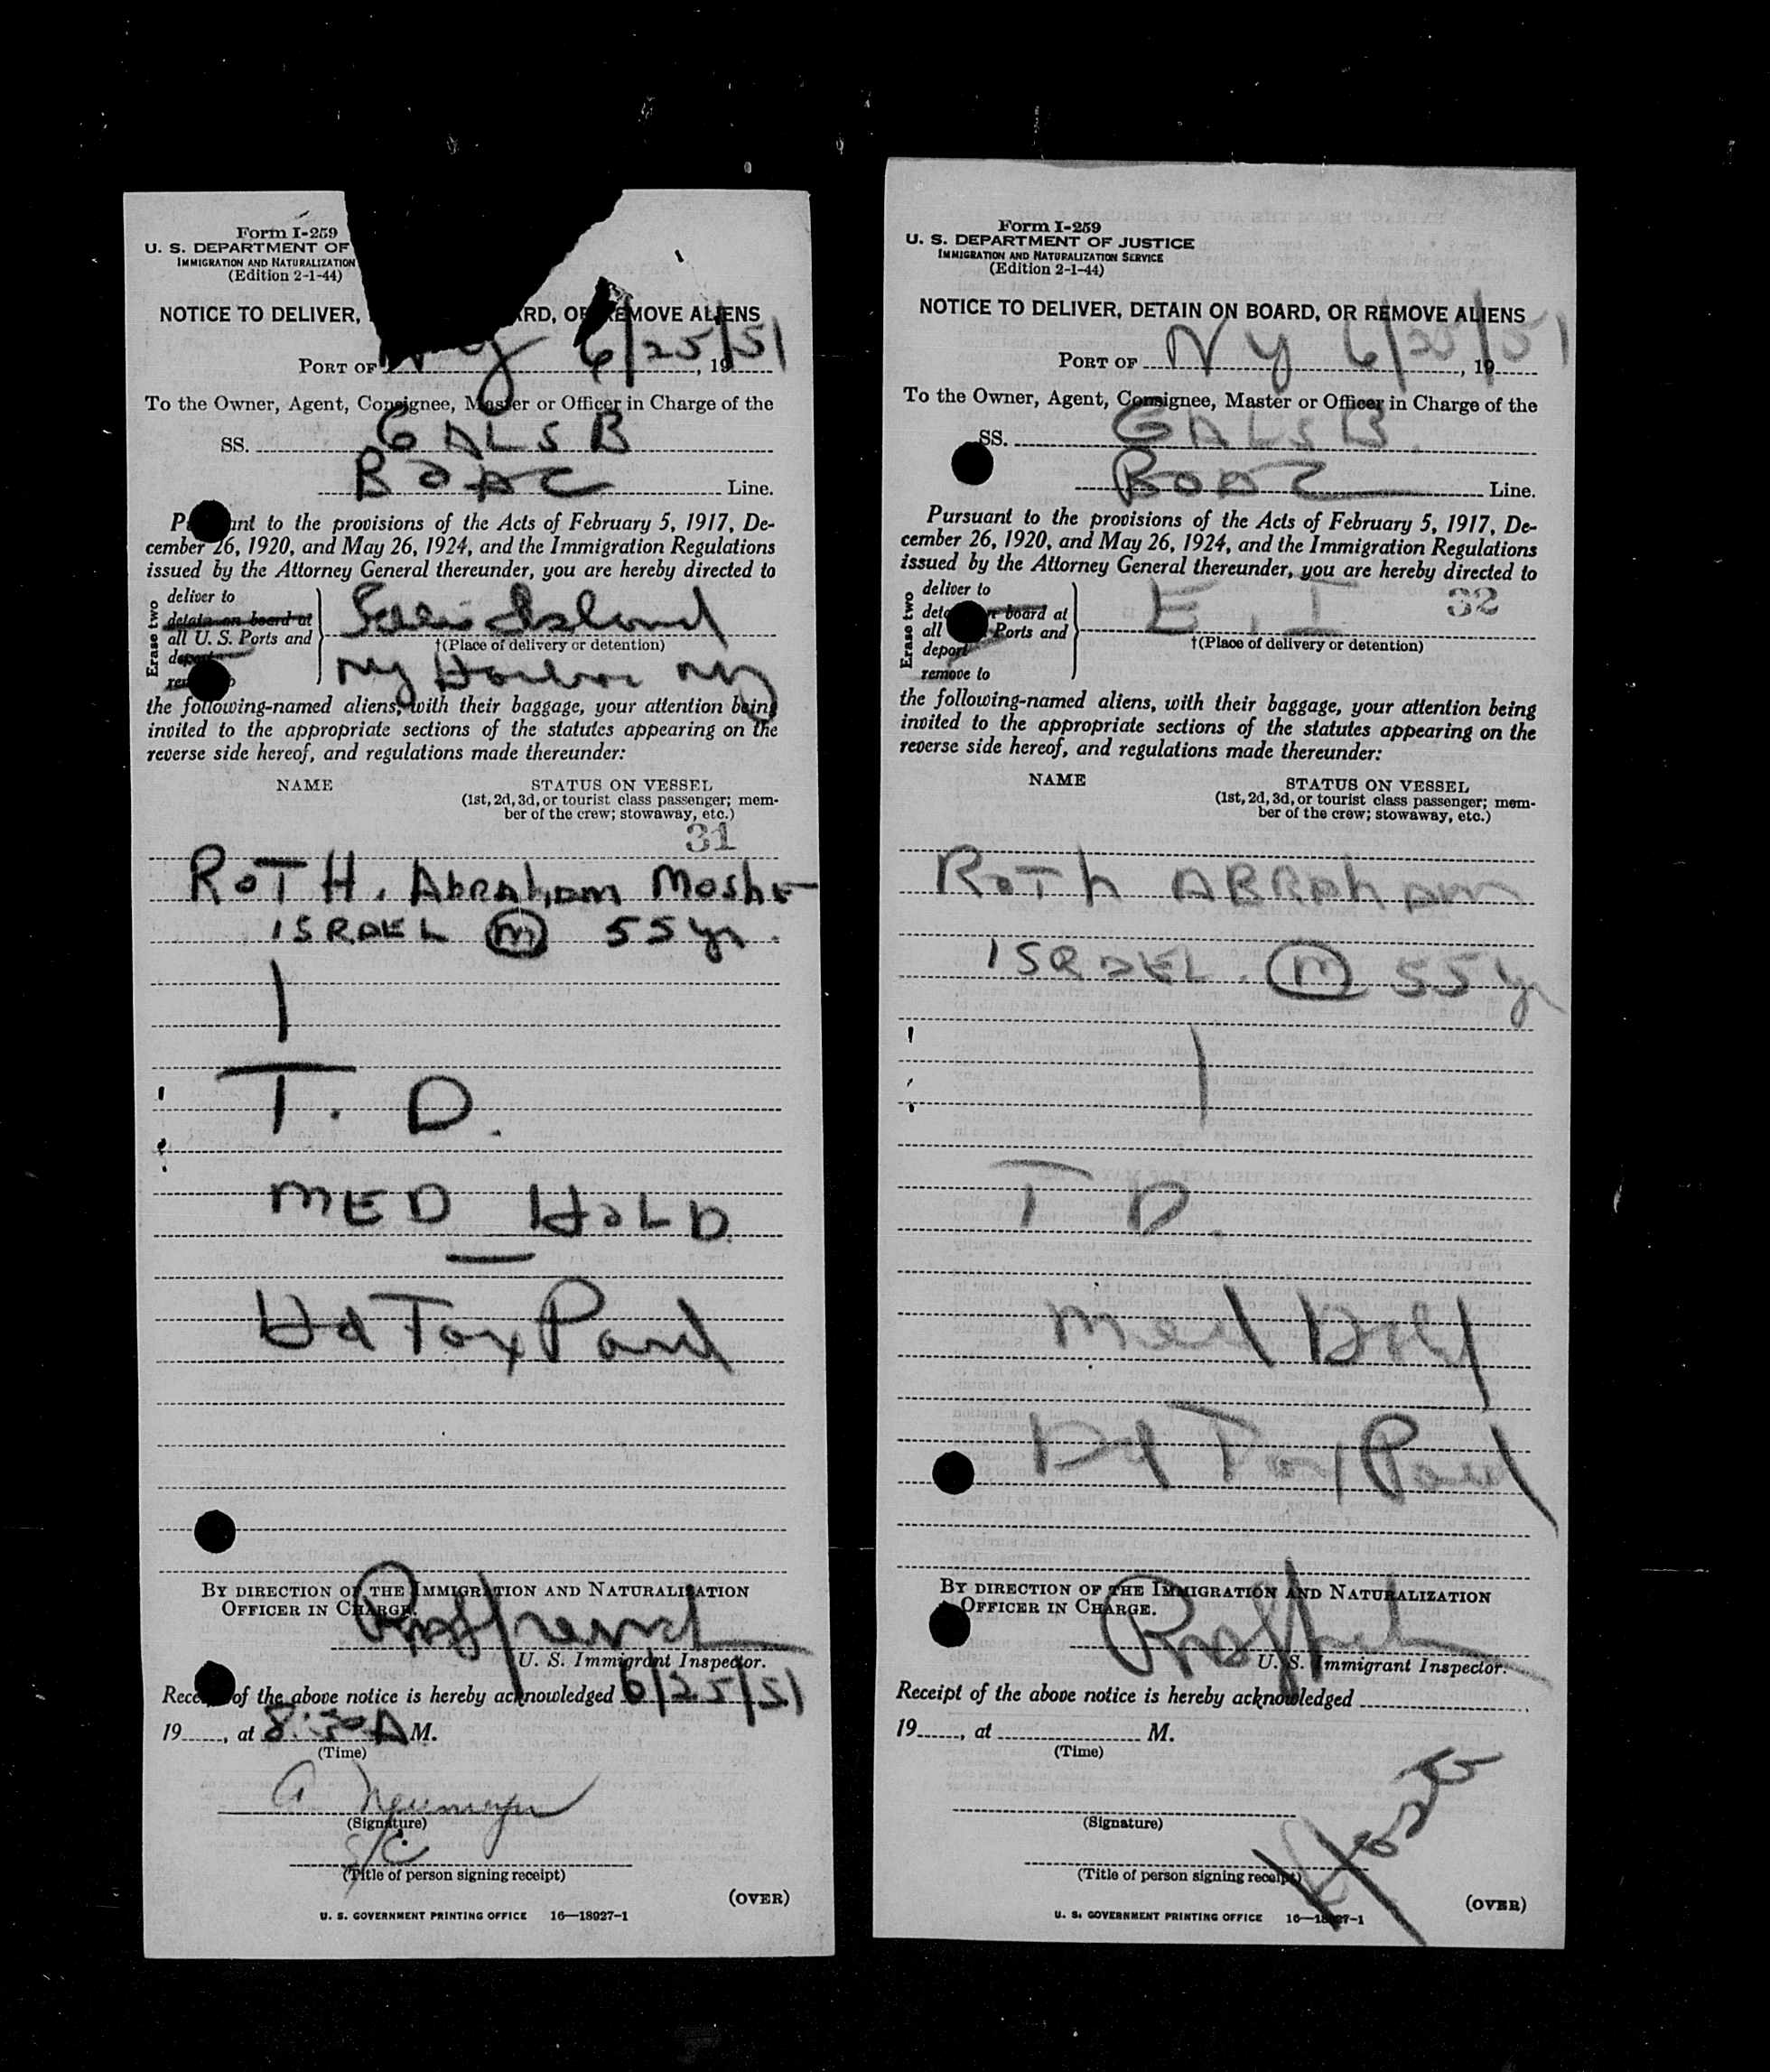 Form I-259
U. S. DEPARTMENT OF
IMMIGRATION AND NATURALIZATION
(Edition 2-1-44)
NOTICE TO DELIVER, RD, OR REMOVE ALIENS
PORT OF Ny 6/25/51, 19
To the Owner, Agent, Consignee, Master or Officer in Charge of the
SS. GALSB
BOAC Line.
P ant to the provisions of the Acts of February 5, 1917, De-
cember 26, 1920, and May 26, 1924, and the Immigration Regulations
issued by the Attorney General thereunder, you are hereby directed to
Erase two
deliver to
detain on board at
all U. S. Ports and
deport
re o
Ellis Island
†(Place of delivery or detention)
Ny Harbor Ny
the following-named aliens, with their baggage, your attention being
invited to the appropriate sections of the statutes appearing on the
reverse side hereof, and regulations made thereunder:
NAME STATUS ON VESSEL
(1st, 2d, 3d, or tourist class passenger; mem-
ber of the crew; stowaway, etc.)
31
ROTH. Abraham Moshe
ISRAEL M 55 yr.
1
T. D.
MED HOLD
Hd Tax Paid
BY DIRECTION OF THE IMMIGRATION AND NATURALIZATION
OFFICER IN CHARGE.
U. S. Immigrant Inspector.
Rece of the above notice is hereby acknowledged 6/25/51
19......, at 8:30 A M.
(Time)
A Neumeyer
(Signature)
S/C
(Title of person signing receipt)
(OVER)
U. S. GOVERNMENT PRINTING OFFICE 16—18927-1
Form I-259
U. S. DEPARTMENT OF JUSTICE
IMMIGRATION AND NATURALIZATION SERVICE
(Edition 2-1-44)
NOTICE TO DELIVER, DETAIN ON BOARD, OR REMOVE ALIENS
PORT OF Ny 6/25/51, 19
To the Owner, Agent, Consignee, Master or Officer in Charge of the
SS. GALSB.
BOAC Line.
Pursuant to the provisions of the Acts of February 5, 1917, De-
cember 26, 1920, and May 26, 1924, and the Immigration Regulations
issued by the Attorney General thereunder, you are hereby directed to
Erase two
deliver to
deta n board at
all Ports and
deport
remove to
E. I 32
†(Place of delivery or detention)
the following-named aliens, with their baggage, your attention being
invited to the appropriate sections of the statutes appearing on the
reverse side hereof, and regulations made thereunder:
NAME STATUS ON VESSEL
(1st, 2d, 3d, or tourist class passenger; mem-
ber of the crew; stowaway, etc.)
Roth ABRAhAm
ISRAEL. M 55 yr
1
T D.
Med Hold
Hd Tax Paid
BY DIRECTION OF THE IMMIGRATION AND NATURALIZATION
OFFICER IN CHARGE.
U. S. Immigrant Inspector.
Receipt of the above notice is hereby acknowledged
19......, at M.
(Time)
(Signature)
(Title of person signing receipt)
(OVER)
U. S. GOVERNMENT PRINTING OFFICE 16—18927-1